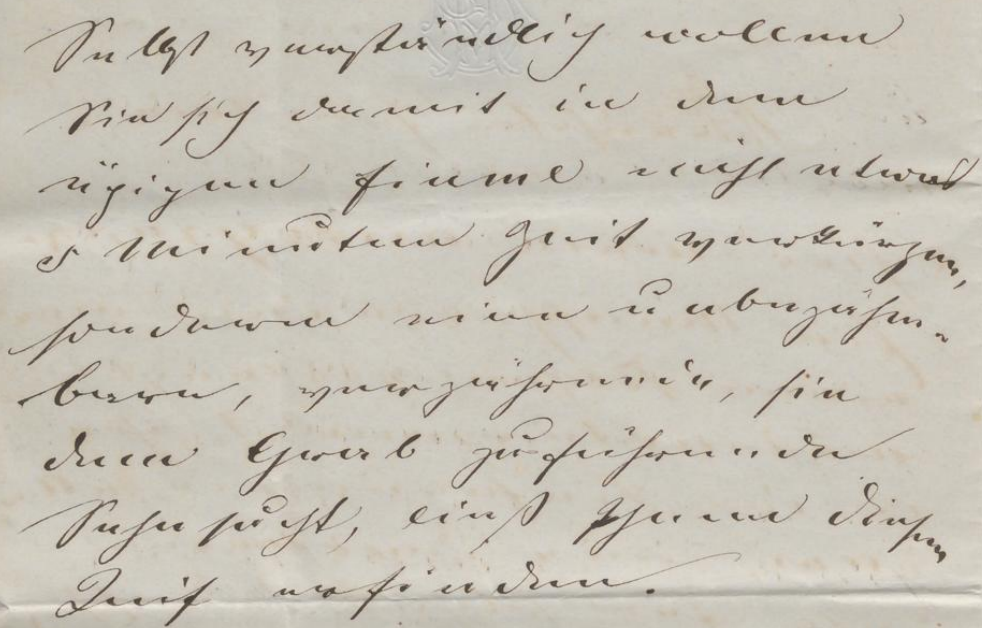 Selbst verständlich wollen
Sie sich damit in dem
üpigen nicht etwas
5 Minuten Zeit verkürzen,
sondern eine unbezähm-
bare, verzährende, sie
dem Grab zuführende
Sehnsucht, ließ Ihnen diesen
erfinden.